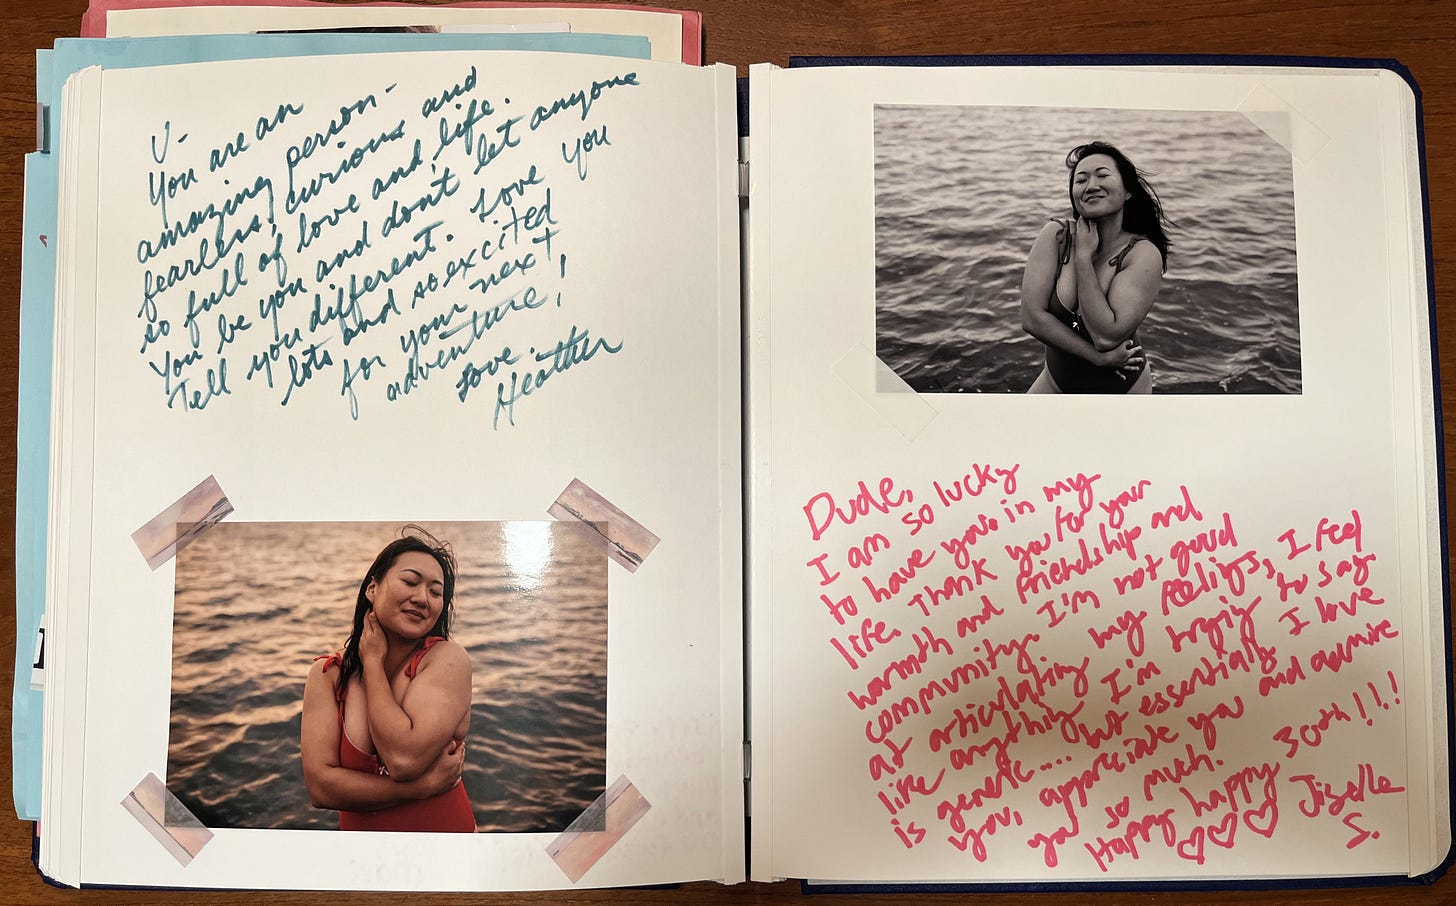 V-
You are an
amazing person-
fearless, curious and
so full of love and life.
You be you and don't let anyone
Tell you different. Love you
lots and so excited
for your next
adventure!
Love,
Heather
Dude,
I am so lucky
to have you in my
life. Thank you for your
warmth and friendship and
community. I'm not good
at articulating my feelings, I feel
like anything I'm trying to say
is generic.... but essentially I love
you, appreciate you and admire
you so much.
Happy happy 30th!!!
♡♡♡ Jiselle
S.